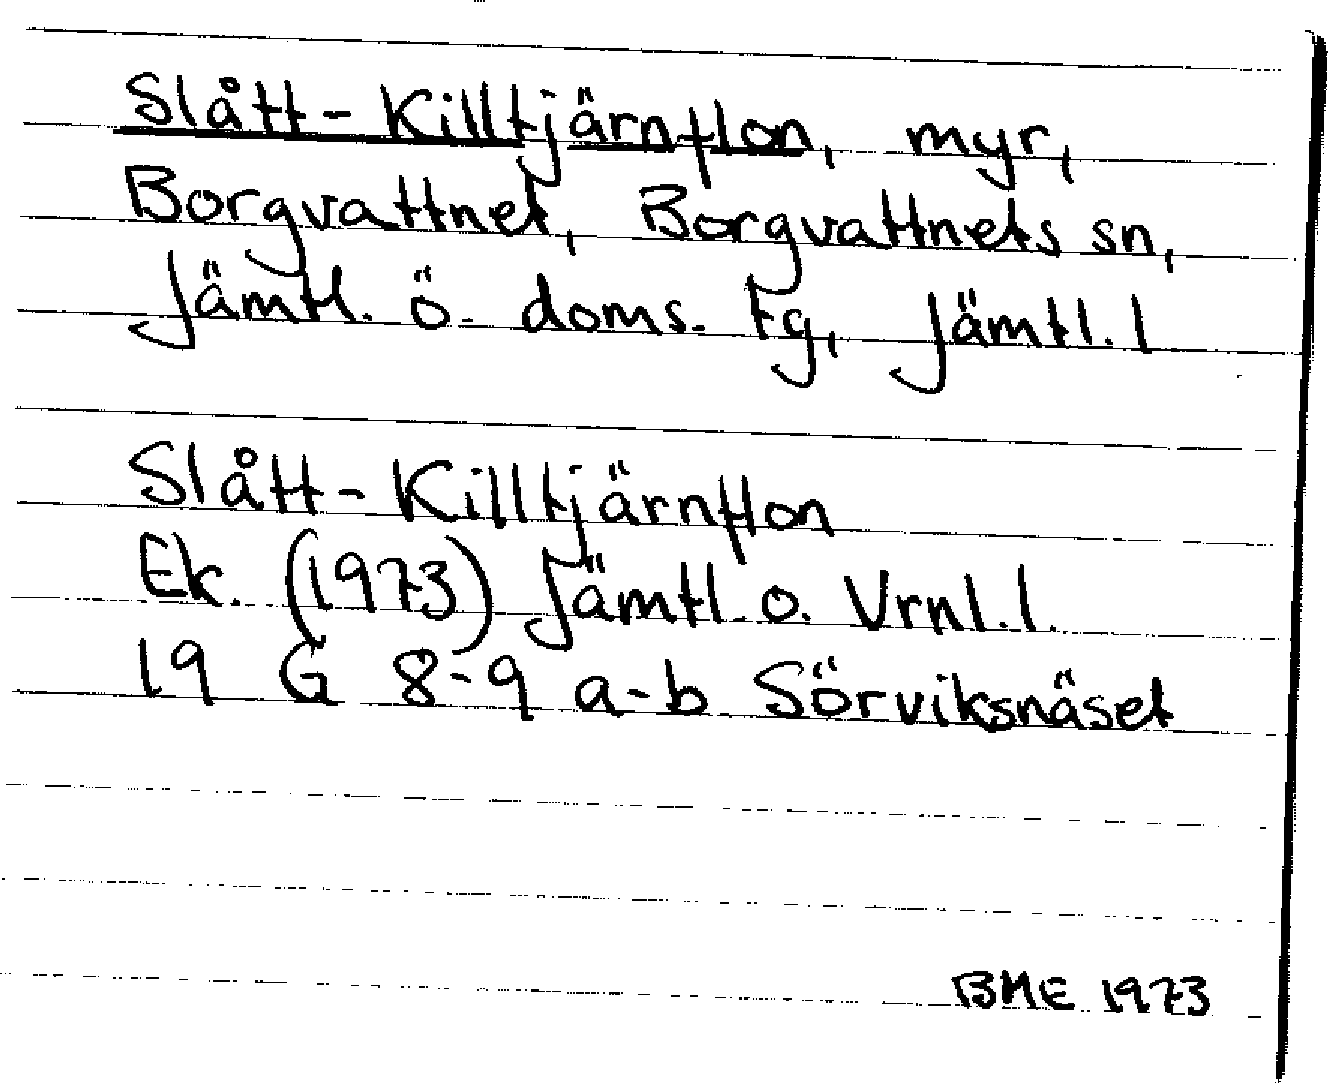 Slått-Killtjärnflon, myr,
Borgvattnet, Borgvattnets sn,
Jämtl. ö. doms. tg, Jämtl. l
Slått-Killtjärnflon
Ek. (1973) Jämtl. o. Vrnl. l.
19 G 8-9 a-b Sörviksnäset
BME 1973